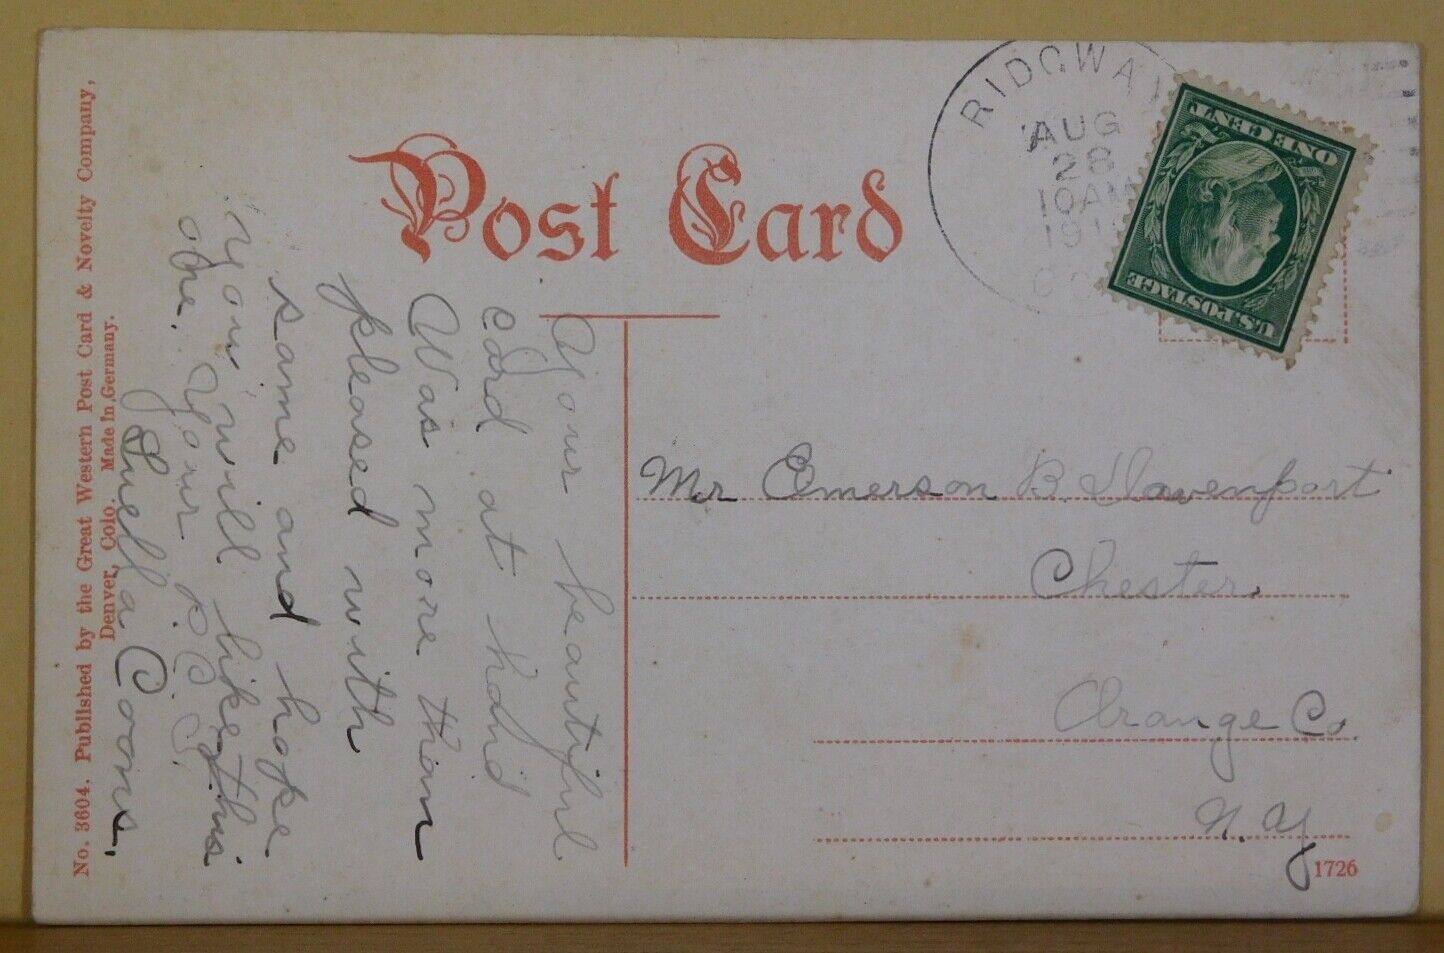 Post Card
RIDGWAY
AUG
28
10AM
191
CO
ONE CENT
U.S. POSTAGE
Your beautiful
card at hand
Was more than
pleased with
same and hope
you will like this
one. Your P.C.F.
Luella Coons,
Mr Emerson B. Davenport
Chester
Orange Co.
N.Y
No. 3604. Published by the Great Western Post Card & Novelty Company,
Denver, Colo. Made in Germany.
1726